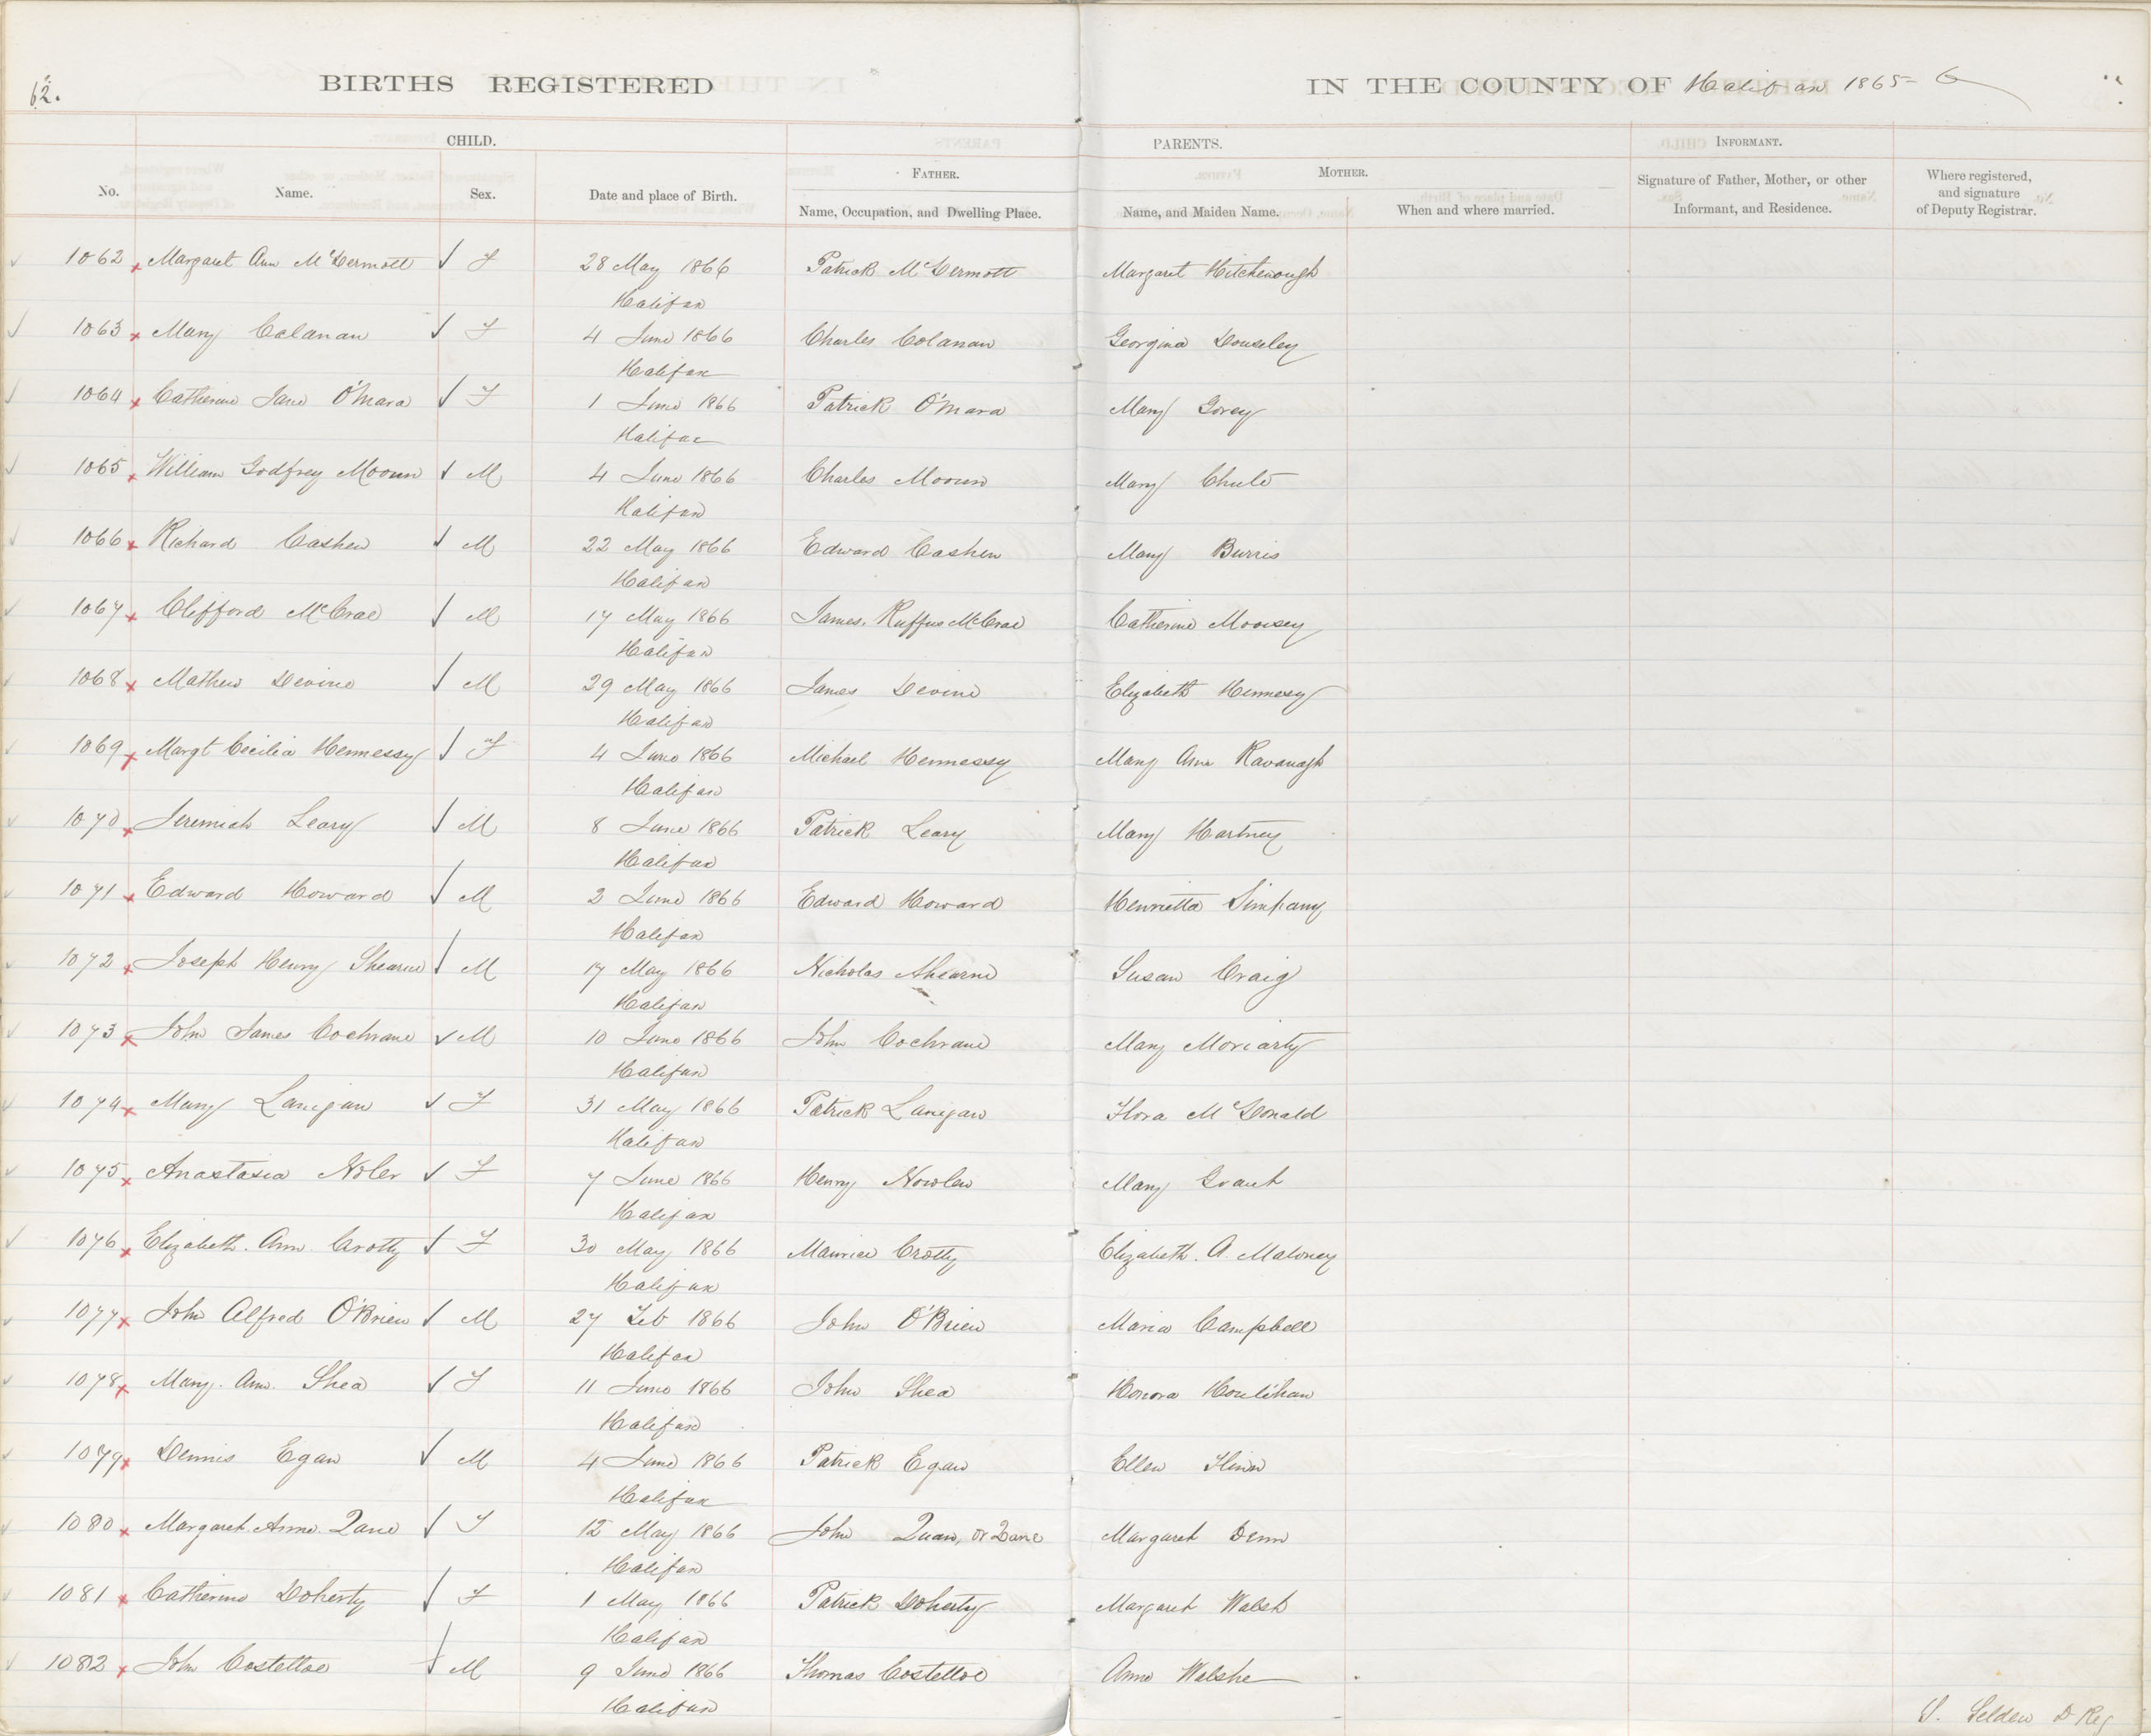 62.
BIRTHS REGISTERED IN THE COUNTY OF Halifax 1865-6
CHILD. PARENTS. INFORMANT.
FATHER. MOTHER.
No. Name. Sex. Date and place of Birth. Name, Occupation, and Dwelling Place. Name, and Maiden Name. When and where married. Signature of Father, Mother, or other Informant, and Residence. Where registered, and signature of Deputy Registrar.
1062 Margaret Ann McDermott F 28 May 1866 Patrick McDermott Margaret Hitchenough
Halifax
1063 Mary Calanan F 4 June 1866 Charles Colanan Georgina Douseley
Halifax
1064 Catherine Jane O'Mara F 1 June 1866 Patrick O'Mara Mary Gorey
Halifax
1065 William Godfrey Mooun M 4 June 1866 Charles Mooun Mary Chute
Halifax
1066 Richard Cashen M 22 May 1866 Edward Cashen Mary Burris
Halifax
1067 Clifford McCrae M 17 May 1866 James. Ruffus McCrae Catherine Moovsey
Halifax
1068 Mathew Devine M 29 May 1866 James Devine Elizabeth Hennesy
Halifax
1069 Margt Cecilia Hennessy F 4 June 1866 Michael Hennessy Mary Ann Kavanagh
Halifax
1070 Jeremiah Leary M 8 June 1866 Patrick Leary Mary Hartney
Halifax
1071 Edward Howard M 2 June 1866 Edward Howard Henrietta Simpany
Halifax
1072 Joseph Henry Shearne M 17 May 1866 Nicholas Ahearne Susan Craig
Halifax
1073 John James Cochrane M 10 June 1866 John Cochrane Mary Moriarty
Halifax
1074 Mary Lanigan F 31 May 1866 Patrick Lanigan Flora McDonald
Halifax
1075 Anastasia Noler F 7 June 1866 Henry Nowlen Mary Grant
Halifax
1076 Elizabeth. Ann. Crotty F 30 May 1866 Maurice Crotty Elizabeth. A. Maloney
Halifax
1077 John Alfred O'Brien M 27 Feb 1866 John O'Brien Maria Campbell
Halifax
1078 Mary. Ann. Shea F 11 June 1866 John Shea Honora Houlihan
Halifax
1079 Dennis Egan M 4 June 1866 Patrick Egan Ellen Flinn
Halifax
1080 Margaret. Anne. Quane F 12 May 1866 John Quan, or Quane Margaret Denn
Halifax
1081 Catherine Doherty F 1 May 1866 Patrick Doherty Margaret Walsh
Halifax
1082 John Costelloe M 9 June 1866 Thomas Costelloe Anne Walshe
Halifax
S. Selden D Reg